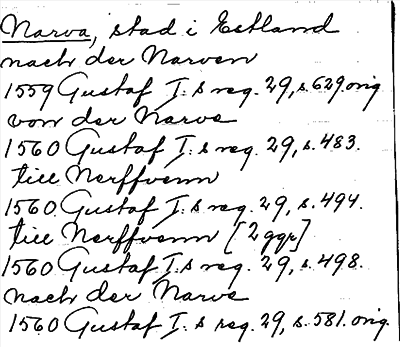 Narva, stad i Estland
nach der Narven
1559 Gustaf I:s reg. 29, s. 629. orig.
von der Narve
1560 Gustaf I:s reg. 29, s. 483.
till Nerffvenn
1560 Gustaf I:s reg. 29, s. 494.
till Nerffvenn [2 ggr]
1560 Gustaf I:s reg. 29, s. 498.
nach der Narve
1560 Gustaf I:s reg. 29, s. 581. orig.